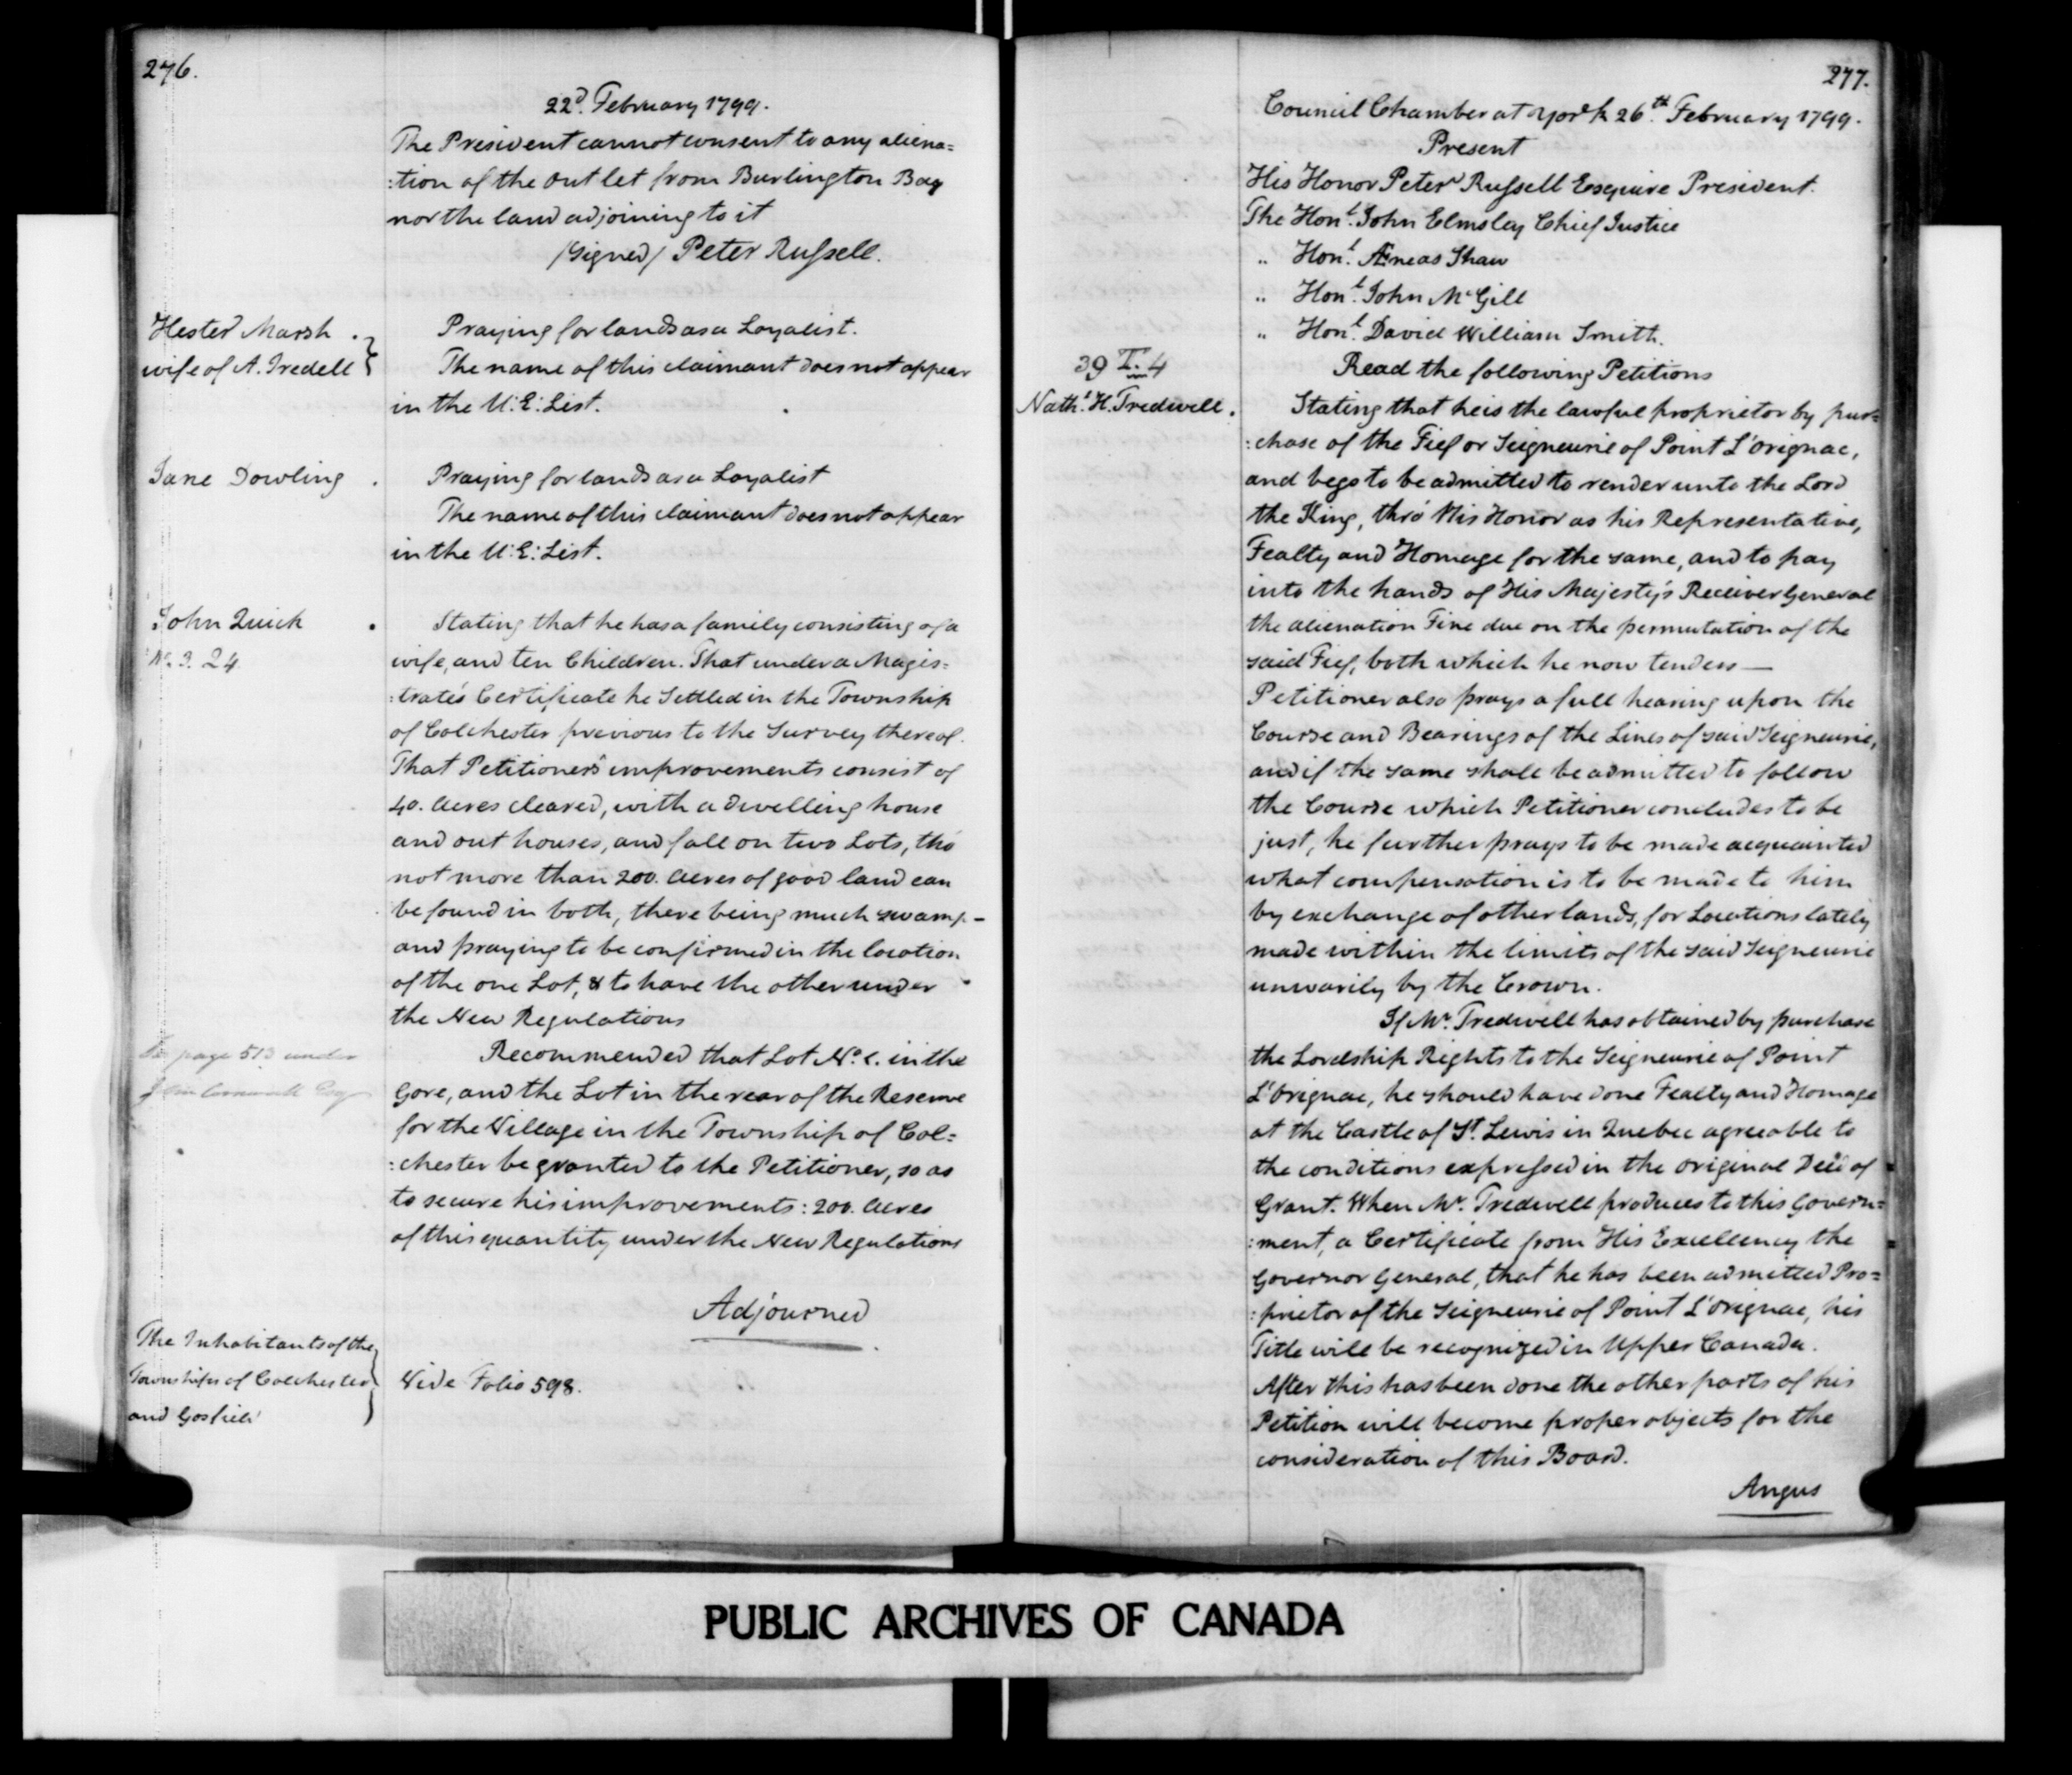 276.
22d. February 1799.
The President cannot consent to any aliena=
:tion of the outlet from Burlington Bay
nor the land adjoining to it
/Signed/ Peter Russell.
Hester Marsh .
wife of A. Iredell }
Praying for lands as a Loyalist.
The name of this claimant does not appear
in the U:E: List.
Jane Dowling .
Praying for lands as a Loyalist
The name of this claimant does not appear
in the U:E: List.
John Quick .
No. 3. 24
Stating that he has a family consisting of a
wife, and ten Children. That under a Magis=
:trate's Certificate he Settled in the Township
of Colchester previous to the Survey thereof.
That Petitioner's improvements consist of
40. Acres cleared, with a dwelling house
and out houses, and fall on two Lots, tho'
not more than 200. Acres of good land can
be found in both, there being much swamp -
and praying to be confirmed in the location
of the one Lot, & to have the other under
the New Regulations
page 513 under
Recommended that Lot No. in the
Gore, and the Lot in the rear of the Reserve
for the Village in the Township of Col=
:chester be granted to the Petitioner, so as
to secure his improvements: 200. Acres
of this quantity under the New Regulations
Adjourned
The Inhabitants of the
Townships of Colchester
and Gosfield }
Vide Folio 598.
277.
Council Chamber at York 26th. February 1799.
Present
His Honor Peter Russell Esquire President.
The Honl. John Elmsley Chief Justice
" Honl. Æneas Shaw
" Honl. John McGill
" Honl. David William Smith.
Read the following Petitions
39 T. 4
Nathl. H. Tredwell .
Stating that he is the lawful proprietor by pur=
:chase of the Fief or Seigneurie of Point L'orignac,
and begs to be admitted to render unto the Lord
the King, thro' His Honor as his Representative,
Fealty and Homage for the same, and to pay
into the hands of His Majesty's Receiver General
the alienation Fine due on the permutation of the
said Fief, both which he now tenders —
Petitioner also prays a full hearing upon the
Course and Bearings of the Lines of said Seigneurie,
and if the same shall be admitted to follow
the Course which Petitioner concludes to be
just, he further prays to be made acquainted
what compensation is to be made to him
by exchange of other lands, for Locations lately
made within the limits of the said Seigneurie
unwarily by the Crown.
If Mr. Tredwell has obtained by purchase
the Lordship Rights to the Seigneurie of Point
L'Orignac, he should have done Fealty and Homage
at the Castle of St. Lewis in Quebec agreeable to
the conditions expressed in the original Deed of
Grant. When Mr. Tredwell produces to this Govern=
:ment, a Certificate from His Excellency the
Governor General, that he has been admitted Pro=
:prietor of the Seigneurie of Point L'Orignac, his
Title will be recognized in Upper Canada.
After this has been done the other parts of his
Petition will become proper objects for the
consideration of this Board.
Angus
PUBLIC ARCHIVES OF CANADA